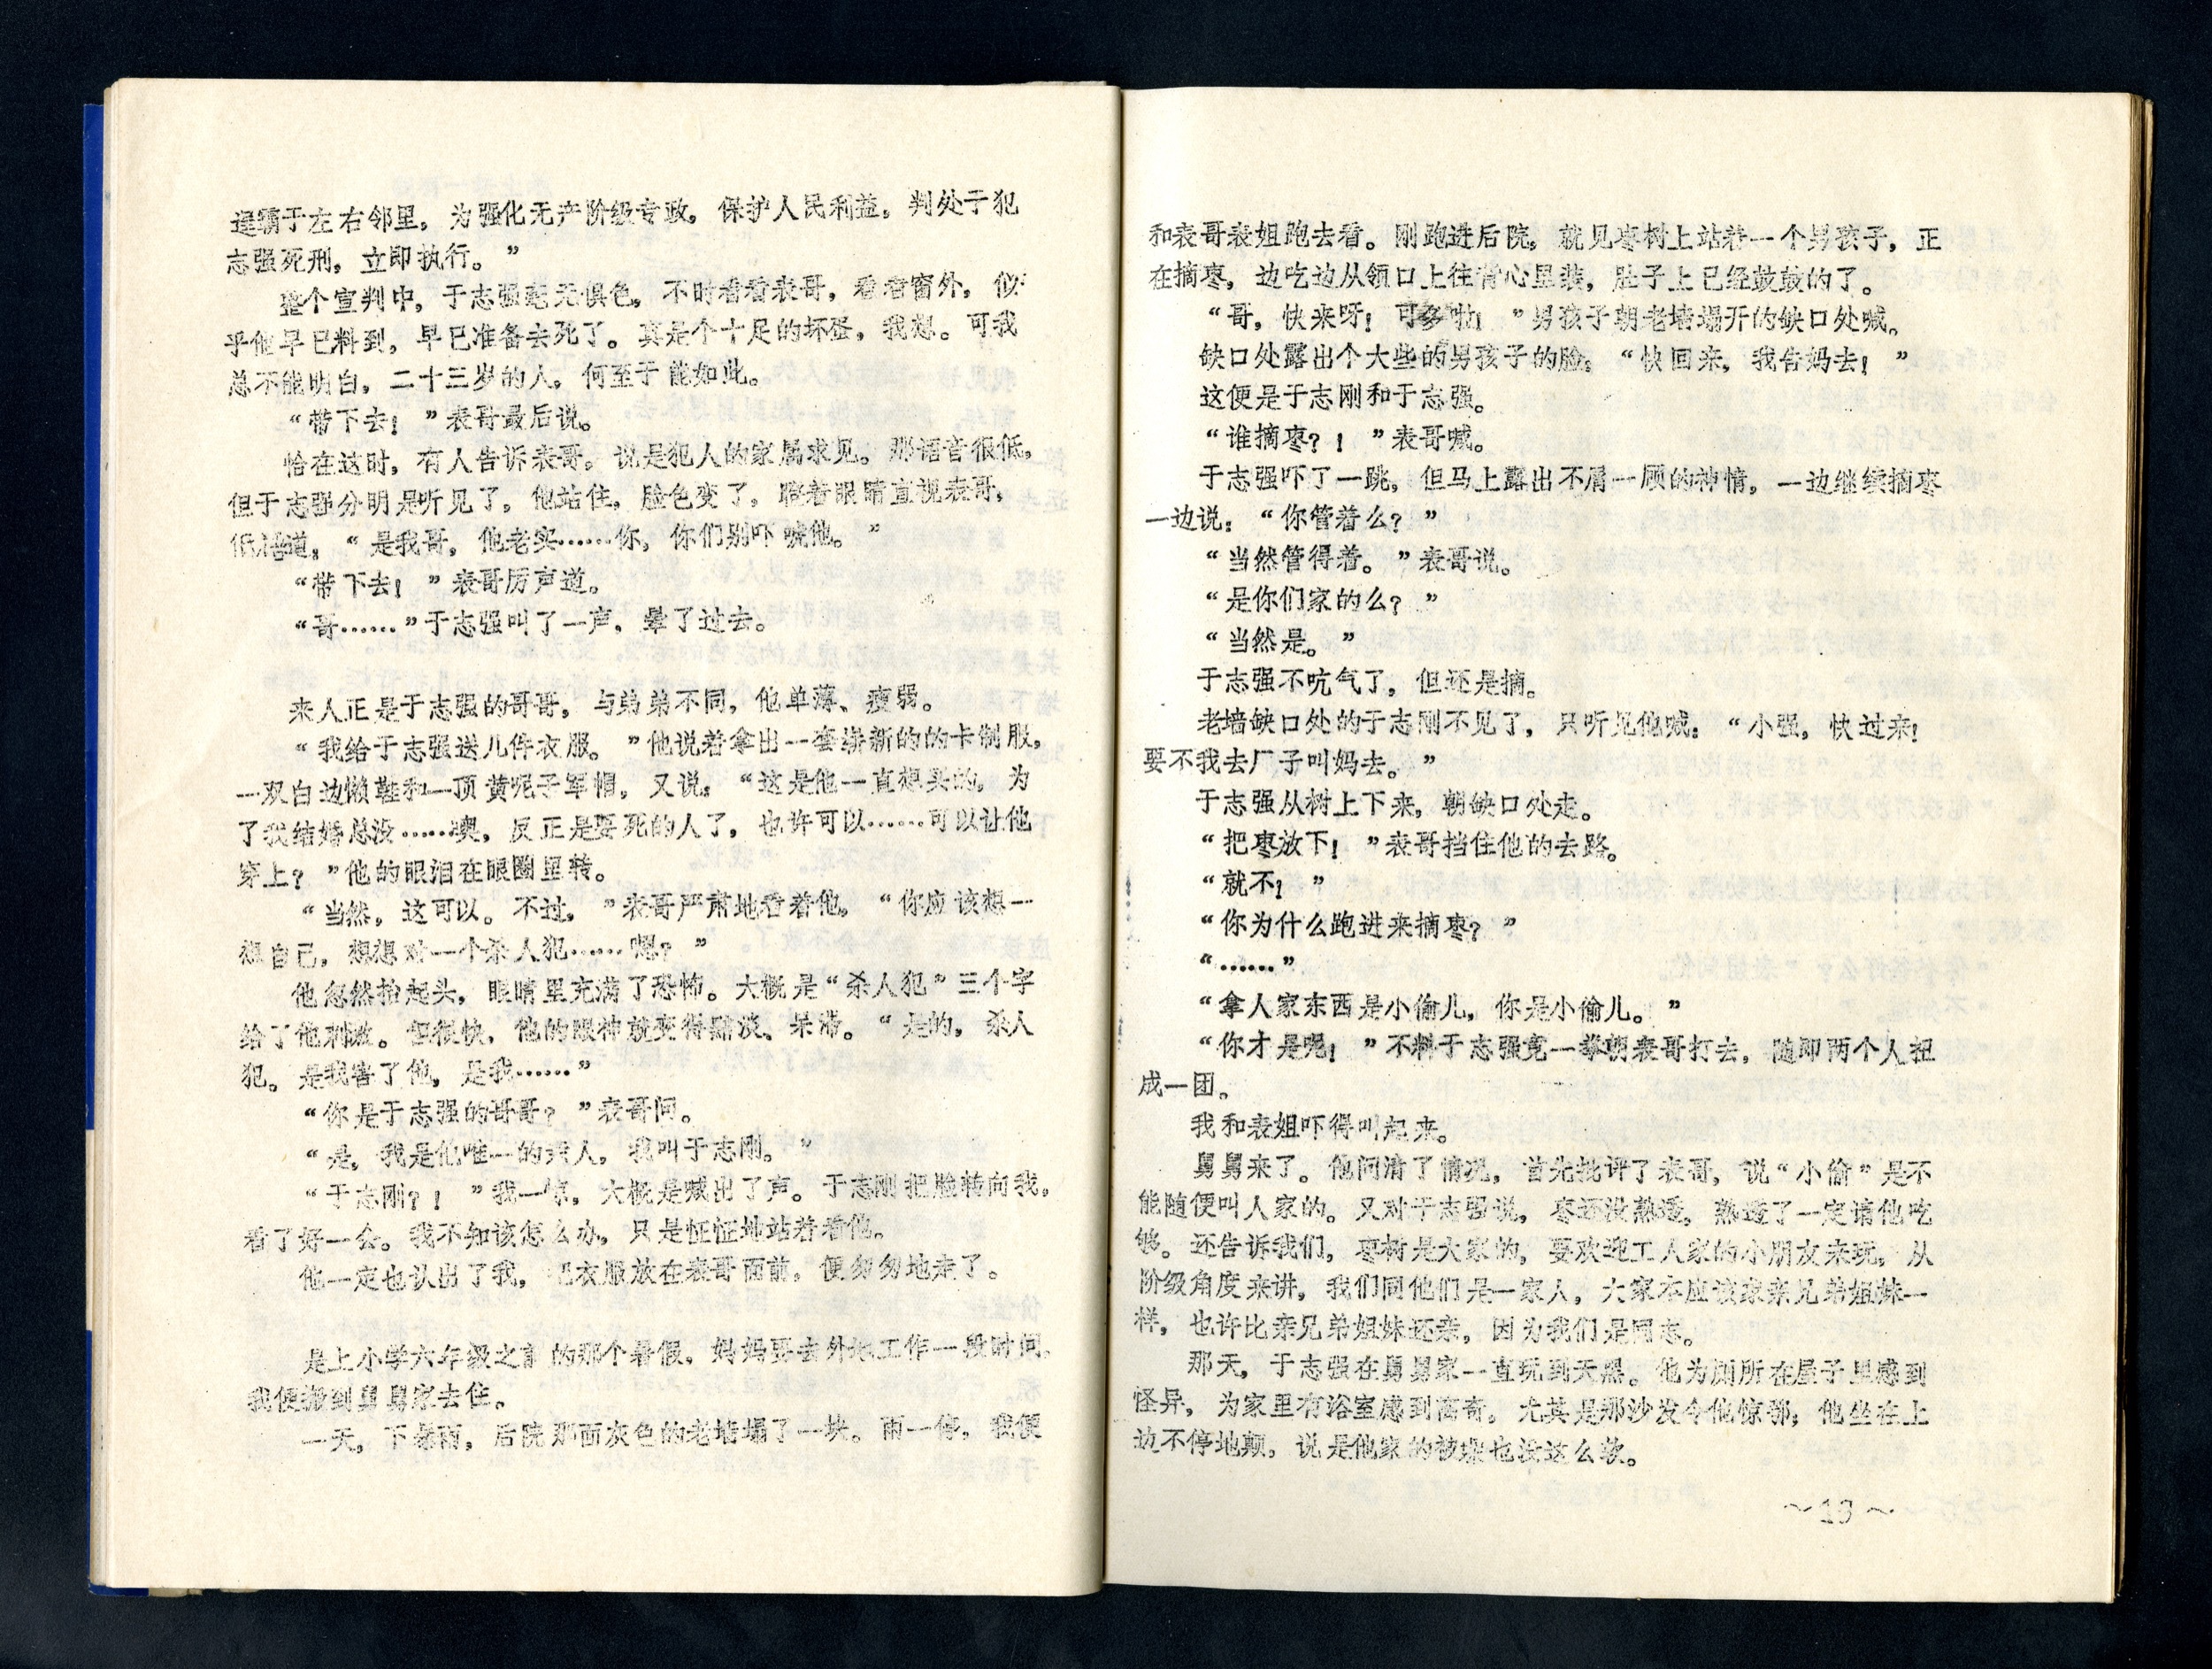 逞霸于左右邻里，为强化无产阶级专政，保护人民利益，判处于犯
志强死刑，立即执行。”
整个宣判中，于志强毫无惧色，不时看看表哥，看看窗外，似
乎他早已料到，早已准备去死了。真是个十足的坏蛋，我想。可我
总不能明白，二十三岁的人，何至于能如此。
“带下去！”表哥最后说。
恰在这时，有人告诉表哥，说是犯人的家属求见。那语音很低，
但于志强分明是听见了，他站住，脸色变了，瞪着眼睛直视表哥，
低道：“是我哥，他老实……你，你们别吓唬他。”
“带下去！”表哥厉声道。
“哥……”于志强叫了一声，晕了过去。
来人正是于志强的哥哥，与弟弟不同，他单薄、瘦弱。
“我给于志强送几件衣服。”他说着拿出一套崭新的的卡制服，
一双白边懒鞋和一顶黄呢子军帽，又说：“这是他一直想买的，为
了我结婚总没……噢，反正是要死的人了，也许可以……可以让他
穿上？”他的眼泪在眼圈里转。
“当然，这可以。不过，”表哥严肃地看着他，“你应该想一
想自己，想想对一个杀人犯……嗯？”
他忽然抬起头，眼睛里充满了恐怖。大概是“杀人犯”三个字
给了他刺激。但很快，他的眼神就变得黯淡、呆滞。“是的，杀人
犯。是我害了他，是我……”
“你是于志强的哥哥？”表哥问。
“是，我是他唯一的亲人，我叫于志刚。”
“于志刚？！”我一惊，大概是喊出了声。于志刚把脸转向我，
看了好一会。我不知该怎么办，只是怔怔地站着看他。
他一定也认出了我，把衣服放在表哥面前，便匆匆地走了。
是上小学六年级之前的那个暑假，妈妈要去外地工作一段时间，
我便搬到舅舅家去住。
一天，下暴雨，后院那面灰色的老墙塌了一块。雨一停，我便
和表哥表姐跑去看。刚跑进后院，就见枣树上站着一个男孩子，正
在摘枣，边吃边从领口上往背心里装，肚子上已经鼓鼓的了。
“哥，快来呀！可多啦！”男孩子朝老墙塌开的缺口处喊。
缺口处露出个大些的男孩子的脸：“快回来，我告妈去！”
这便是于志刚和于志强。
“谁摘枣？！”表哥喊。
于志强吓了一跳，但马上露出不屑一顾的神情，一边继续摘枣
一边说：“你管着么？”
“当然管得着。”表哥说。
“是你们家的么？”
“当然是。”
于志强不吭气了，但还是摘。
老墙缺口处的于志刚不见了，只听见他喊：“小强，快过来！
要不我去厂子叫妈去。”
于志强从树上下来，朝缺口处走。
“把枣放下！”表哥挡住他的去路。
“就不！”
“你为什么跑进来摘枣？”
“……”
“拿人家东西是小偷儿，你是小偷儿。”
“你才是呢！”不料于志强竟一拳朝表哥打去，随即两个人扭
成一团。
我和表姐吓得叫起来。
舅舅来了。他问清了情况，首先批评了表哥，说“小偷”是不
能随便叫人家的。又对于志强说，枣还没熟透，熟透了一定请他吃
够。还告诉我们，枣树是大家的，要欢迎工人家的小朋友来玩，从
阶级角度来讲，我们同他们是一家人，大家本应该象亲兄弟姐妹一
样，也许比亲兄弟姐妹还亲，因为我们是同志。
那天，于志强在舅舅家一直玩到天黑。他为厕所在屋子里感到
怪异，为家里有浴室感到离奇。尤其是那沙发令他惊鄂；他坐在上
边不停地颠，说是他家的被垛也没这么软。
～13～